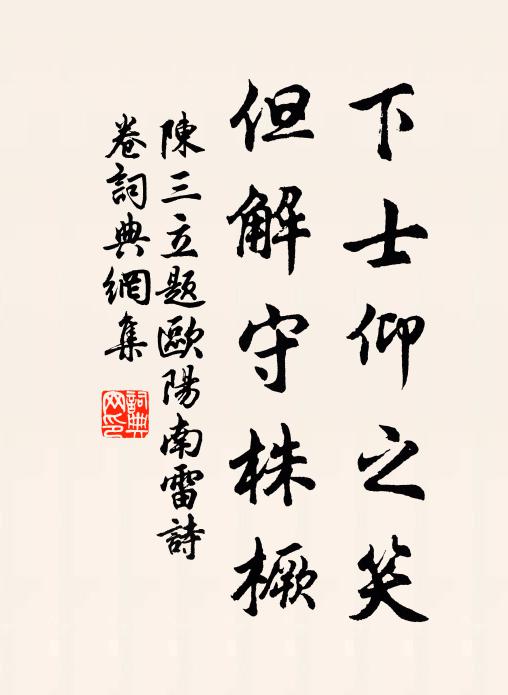 下士仰之笑
但解守株橛
陳三立题歐陽南雷詩
卷詞典網集
詞典网印